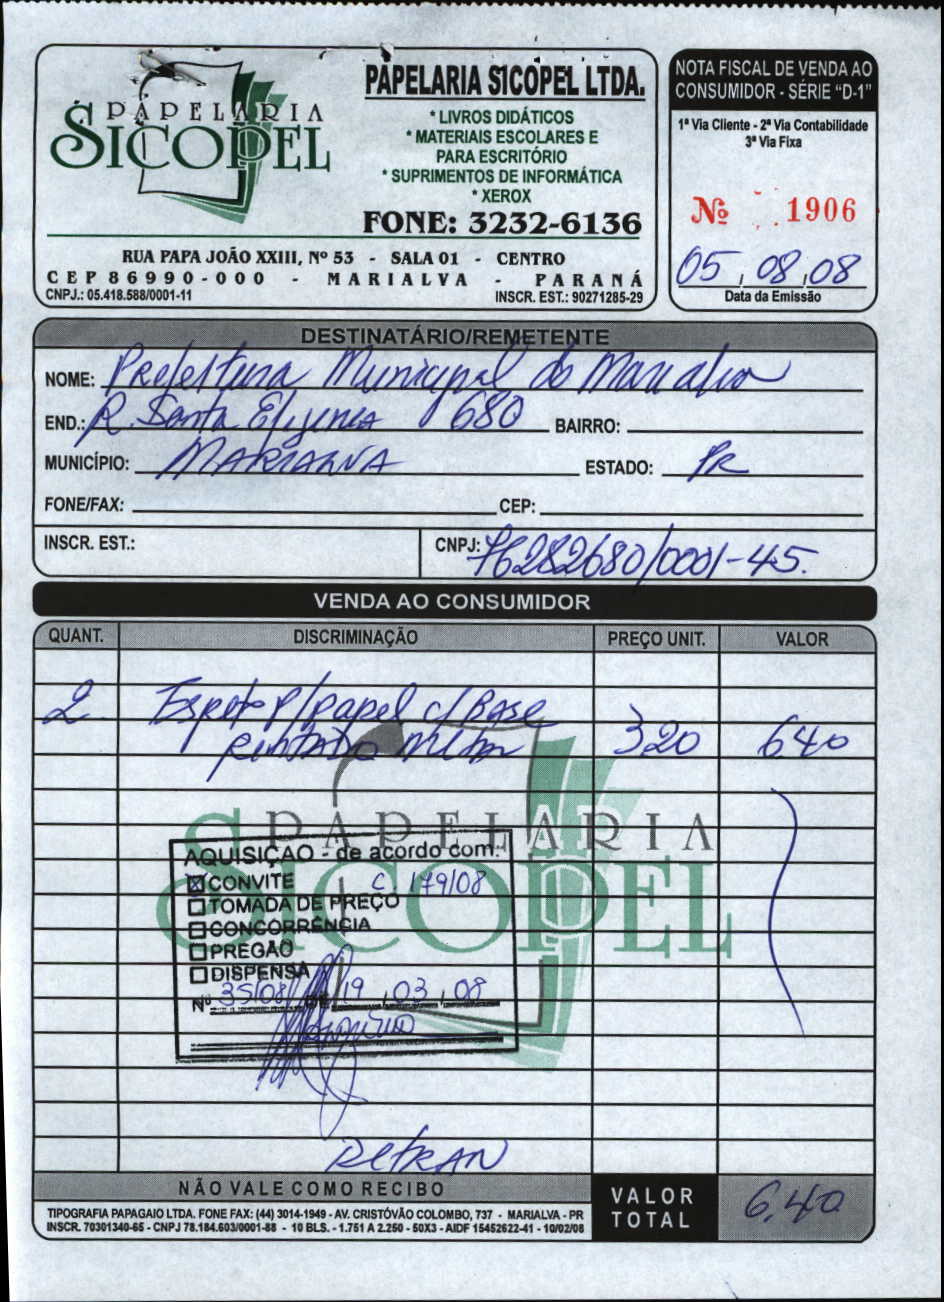 PAPELARIA
SICOPEL
PAPELARIA SICOPEL LTDA.
* LIVROS DIDÁTICOS
* MATERIAIS ESCOLARES E
PARA ESCRITÓRIO
* SUPRIMENTOS DE INFORMÁTICA
* XEROX
FONE: 3232-6136
RUA PAPA JOÃO XXIII, Nº 53 - SALA 01 - CENTRO
CEP 86990-000 - MARIALVA - PARANÁ
CNPJ.: 05.418.588/0001-11 INSCR. EST.: 90271285-29
NOTA FISCAL DE VENDA AO
CONSUMIDOR - SÉRIE “D-1”
1ª Via Cliente - 2ª Via Contabilidade
3ª Via Fixa
Nº 1906
05, 08, 08
Data da Emissão
DESTINATÁRIO/REMETENTE
NOME: Prefeitura Municipal de Marialva
END.: R. Santa Efigenia 680 BAIRRO:
MUNICÍPIO: MARIALVA ESTADO: PR
FONE/FAX: CEP:
INSCR. EST.: CNPJ: 76282680/0001-45.
VENDA AO CONSUMIDOR
QUANT. DISCRIMINAÇÃO PREÇO UNIT. VALOR
2 Espeto P/papel c/Base
320 640
PAPELARIA
SICOPEL
AQUISIÇÃO - de acordo com:
CONVITE C. 179/08
TOMADA DE PREÇO
CONCORRÊNCIA
PREGÃO
DISPENSA
Nº 35/08 DE 19, 03, 08
DETRAN
NÃO VALE COMO RECIBO
VALOR TOTAL 6,40
TIPOGRAFIA PAPAGAIO LTDA. FONE FAX: (44) 3014-1949 - AV. CRISTÓVÃO COLOMBO, 737 - MARIALVA - PR
INSCR. 70301340-65 - CNPJ 78.184.603/0001-88 - 10 BLS. - 1.751 A 2.250 - 50X3 - AIDF 15452622-41 - 10/02/08